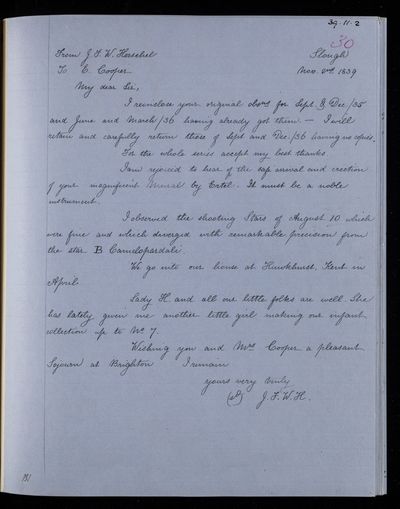 39-11-2
30
From J. F. W. Herschel Slough
To E. Cooper Nov. 2nd 1839
My dear Sir,
I reinclose your original obsns for Sept. & Dec./35
and June and March/36 having already got them — I will
retain and carefully return those of Sept and Dec./36 having no copies.
For the whole series accept my best thanks
I am rejoiced to hear of the safe arrival and erection
of your magnificent by Ertel. It must be a noble
instrument.
I observed the shooting Stars of August 10 which
were fine and which diverged with remarkable precision from
the star B Camelopardali.
We go into our house at Hawkhurst, Kent in
April.
Lady H. and all our little folks are well. She
has lately given me another little girl making our infant
collection up to No. 7.
Wishing you and Mrs Cooper a pleasant
Sojourn at Brighton I remain
yours very truly
(sd) J. F. W. H.